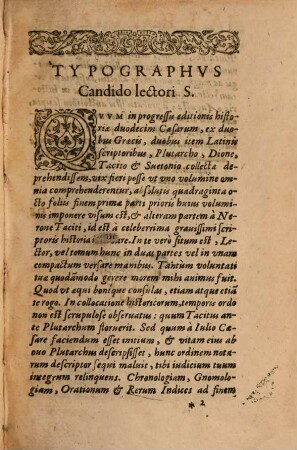 TYPOGRAPHVS
Candido lectori S.
QVVM in progressu editionis histo
riæ duodecim Cæsarum, ex duo
bus Græcis, duobus item Latinis
scriptoribus, Plutarcho, Dione,
Tacito & Suetonio collecta de
prehendissem, vix fieri posse vt vno volumine om
nia comprehenderentur, absolutis quadraginta o
cto foliis finem primæ parti prioris huius volumi
nis imponere visum est, & alteram partem à Ne
rone Taciti, id est a celeberrima grauissimi scri
ptoris historia. In te verò situm est, Le
ctor, vel tomum hunc in duas partes vel in vnam
compactum versare manibus. Tantùm voluntati
tuæ quadāmodo gerere morem mihi animus fuit.
Quod vt æqui bonique consulas, etiam atque etiā
te rogo. In collocatione historicorum, temporis ordo
non est scrupulosè obseruatus: quum Tacitus an
te Plutarchum floruerit. Sed quum à Iulio Cæ
sare faciendum esset initium, & vitam eius ab
ouo Plutarchus descripsisset, hunc ordinem nota
rum descriptor sequi maluit, tibi iudicium tuum
integrum relinquens. Chronologiam, Gnomolo
giam, Orationum & Rerum Indices ad finem
* 2